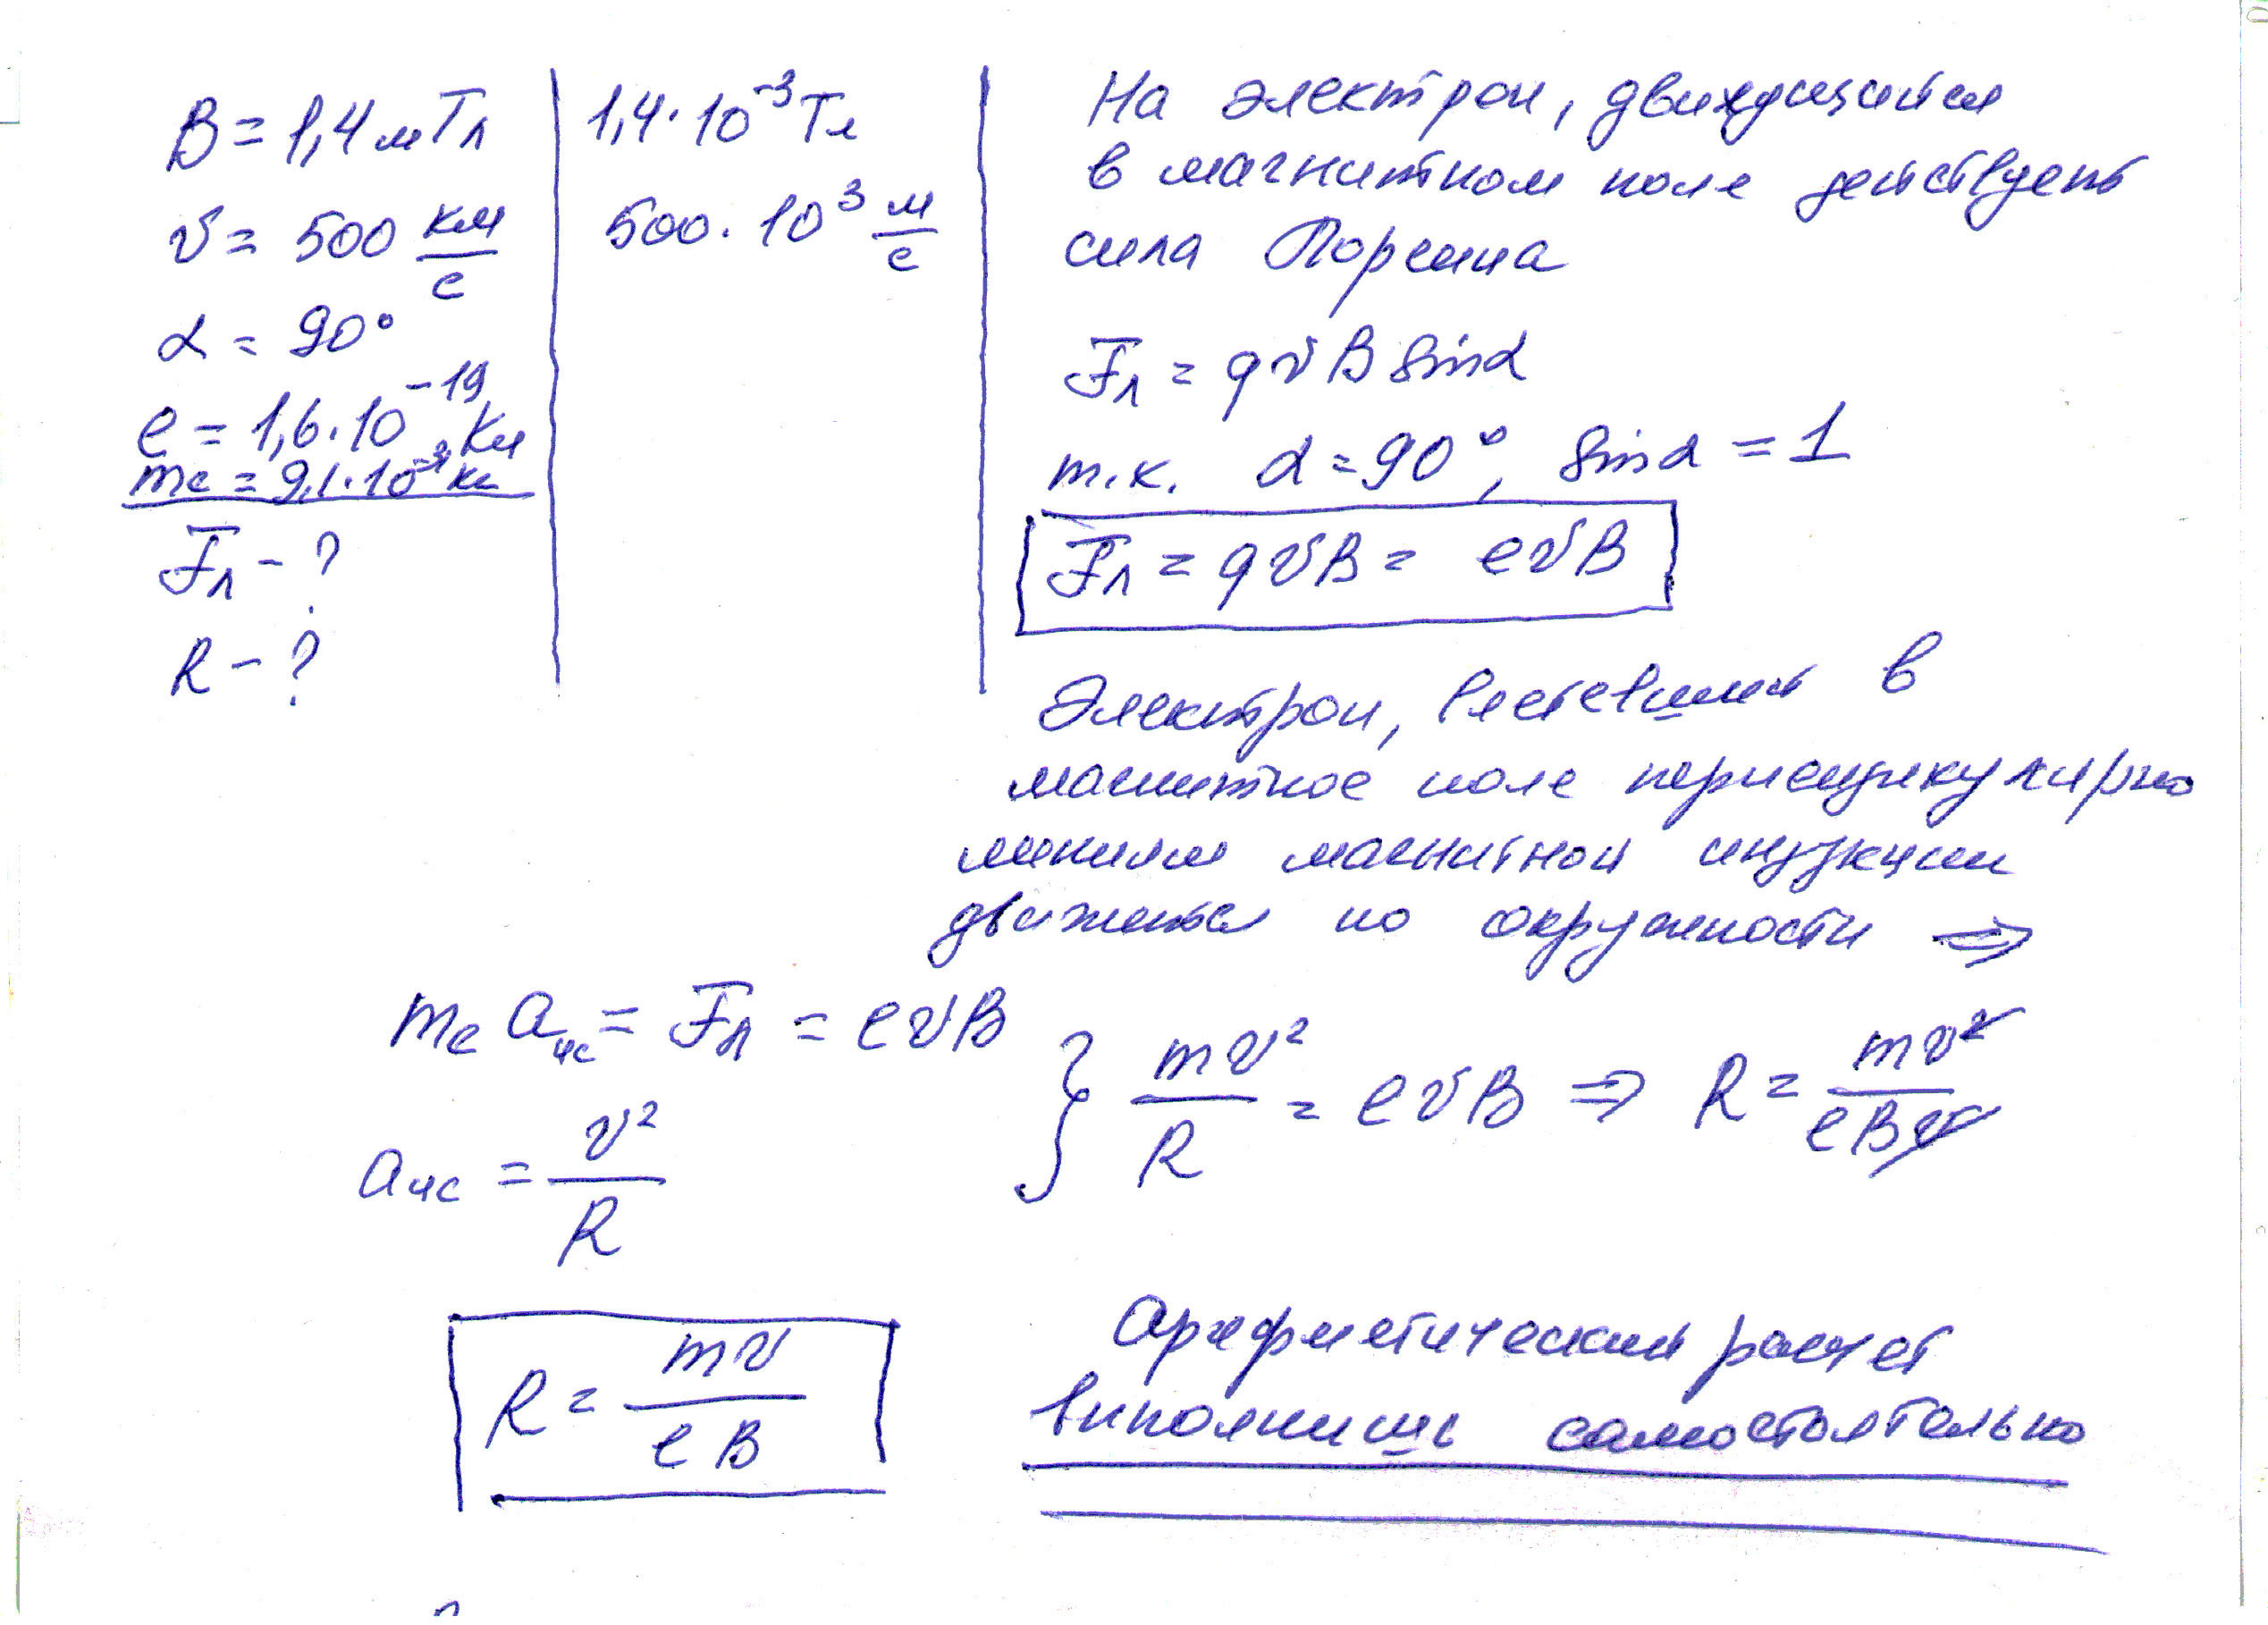 B = 1,4 мТл
1,4·10⁻³ Тл
v = 500 км/с
500·10³ м/с
α = 90°
e = 1,6·10⁻¹⁹ Кл
mе = 9,1·10⁻³¹ кг
Fл - ?
R - ?
На электрон, движущийся
в магнитном поле действует
сила Лоренца
Fл = qvB sinα
т.к. α = 90°, sinα = 1
Fл = qvB = evB
Электрон, влетевший в
магнитное поле перпендикулярно
линиям магнитной индукции
движется по окружности ⇒
mе aцс = Fл = evB
aцс = v²/R
} mv²/R = evB ⇒ R = mv²/eBv
R = mv/eB
Арифметический расчет
выполнишь самостоятельно